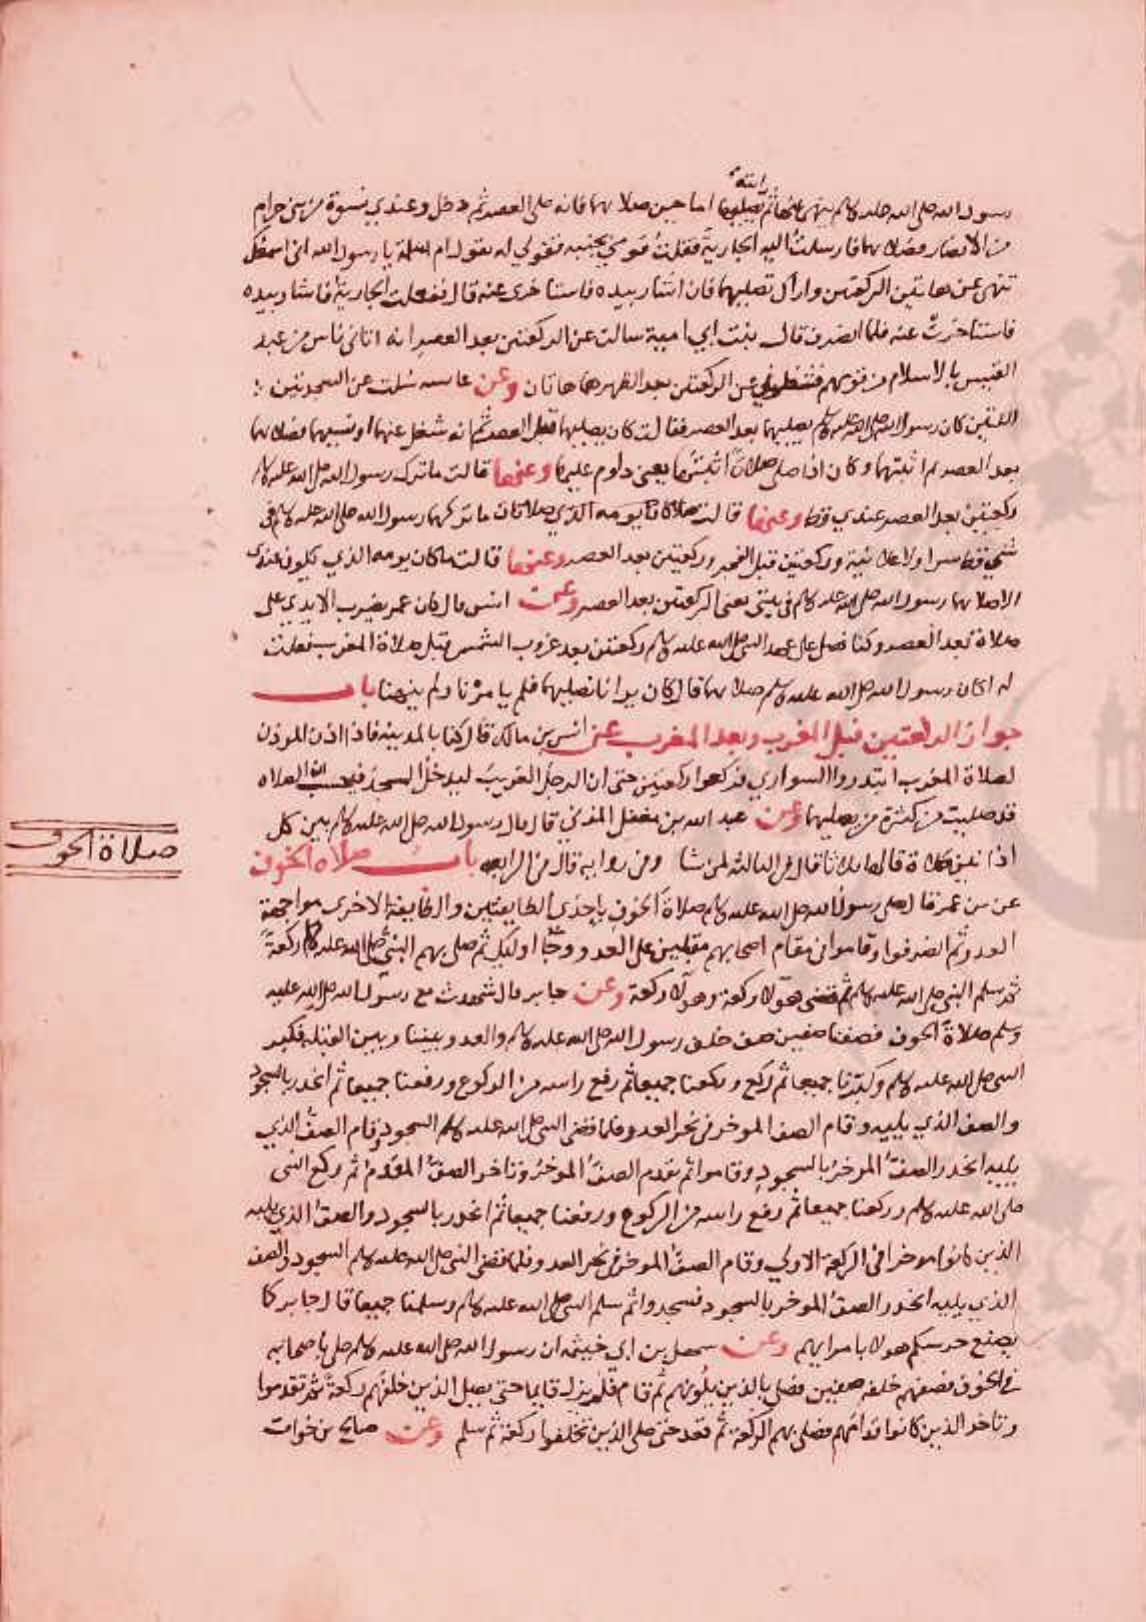 رايته
رسول الله صلى الله عليه وسلم ينهى عنها ثم يصليها اما حين صلاهما فانه صلى العصر ثم دخل وعندي نسوة من بني حرام
من الانصار فصلاهما فارسلت اليه الجارية فقلت قومي بجنبه فقولي له تقول ام سلمة يا رسول الله اني اسمعك
تنهى عن هاتين الركعتين واراك تصليهما فان اشار بيده فاستاخري عنه قال ففعلت الجارية فاشار بيده
فاستاخرت عنه فلما انصرف قال بنت ابي امية سالت عن الركعتين بعد العصر انه اتاني ناس من عبد
القيس بالاسلام من قومهم فشغلوني عن الركعتين بعد الظهر فهما هاتان وعن عايشه سئلت عن السجدتين
اللتين كان رسول الله صلى الله عليه وسلم يصليهما بعد العصر فقالت كان يصليهما قبل العصر ثم انه شغل عنهما او نسيهما فصلاهما
بعد العصر ثم اثبتهما وكان اذا صلى صلاة اثبتها يعني داوم عليها وعنها قالت ما ترك رسول الله صلى الله عليه وسلم
ركعتين بعد العصر عندي قط وعنها قالت صلاتان ما تركهما رسول الله صلى الله عليه وسلم في
بيتي قط سرا ولا علانية ركعتين قبل الفجر وركعتين بعد العصر وعنها قالت ما كان يومه الذي يكون عندي
الا صلاهما رسول الله صلى الله عليه وسلم في بيتي يعني الركعتين بعد العصر وعن انس قال كان عمر يضرب الايدي على
صلاة بعد العصر وكنا نصلي على عهد النبي صلى الله عليه وسلم ركعتين بعد غروب الشمس قبل صلاة المغرب فقلت
له اكان رسول الله صلى الله عليه وسلم صلاهما قال كان يرانا نصليهما فلم يامرنا ولم ينهنا باب
جواز الركعتين قبل المغرب وبعد المغرب عن انس بن مالك قال كنا بالمدينة فاذا اذن الموذن
لصلاة المغرب ابتدروا السواري فركعوا ركعتين حتى ان الرجل الغريب ليدخل المسجد فيحسب ان الصلاه
قد صليت من كثرة من يصليهما وعن عبد الله بن مغفل المزني قال قال رسول الله صلى الله عليه وسلم بين كل
اذانين صلاة قالها ثلاثا قال في الثالثه لمن شا وفي روايه قال في الرابعه باب صلاه الخوف
صلاة الخوف
عن بن عمر قال صلى رسول الله صلى الله عليه وسلم صلاة الخوف باحدى الطايفتين والطايفة الاخرى مواجهة
العدو ثم انصرفوا وقاموا في مقام اصحابهم مقبلين على العدو وجا اوليك ثم صلى بهم النبي صلى الله عليه وسلم ركعة
ثم سلم النبي صلى الله عليه وسلم ثم قضى هولا ركعة وهولا ركعة وعن جابر قال شهدت مع رسول الله صلى الله عليه
وسلم صلاة الخوف فصفنا صفين صف خلف رسول الله صلى الله عليه وسلم والعدو بيننا وبين القبله فكبر
النبي صلى الله عليه وسلم وكبرنا جميعا ثم ركع وركعنا جميعا ثم رفع راسه من الركوع ورفعنا جميعا ثم انحدر بالسجود
والصف الذي يليه وقام الصف الموخر في نحر العدو فلما قضى النبي صلى الله عليه وسلم السجود وقام الصف الذي
يليه انحدر الصف الموخر بالسجود وقاموا ثم تقدم الصف الموخر وتاخر الصف المقدم ثم ركع النبي
صلى الله عليه وسلم وركعنا جميعا ثم رفع راسه من الركوع ورفعنا جميعا ثم انحدر بالسجود والصف الذي يليه
الذين كانوا موخرا في الركعة الاولي وقام الصف الموخر في نحر العدو فلما قضى النبي صلى الله عليه وسلم السجود والصف
الذي يليه انحدر الصف الموخر بالسجود فسجدوا ثم سلم النبي صلى الله عليه وسلم وسلمنا جميعا قال جابر كما
يصنع حرسكم هولا بامرايهم وعن سهل بن ابي خيثمه ان رسول الله صلى الله عليه وسلم صلى باصحابه
في الخوف فصفهم خلفه صفين فصلى بالذين يلونهم ثم قام فلم يزل قايما حتى يصلي الذين خلفهم ركعة ثم تقدموا
وتاخر الذين كانوا قدامهم فصلى بهم الركعة ثم قعد حتى صلى الذين تخلفوا ركعة ثم سلم وعن صالح بن خوات